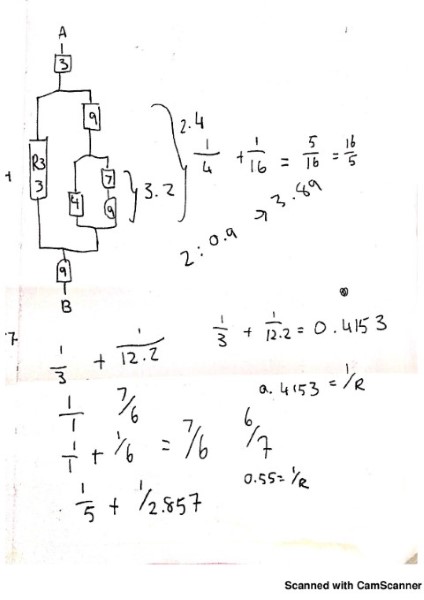 A
3
9
R3
3
7
4
9
3.2
2.4
1/4 + 1/16 = 5/16 = 16/5
2:0.9 → 3.89
9
B
7
1/3 + 1/12.2
1/3 + 1/12.2 = 0.4153
0.4153 = 1/R
1/1 7/6
1/1 + 1/6 = 7/6 6/7
0.55 = 1/R
1/5 + 1/2.857
Scanned with CamScanner